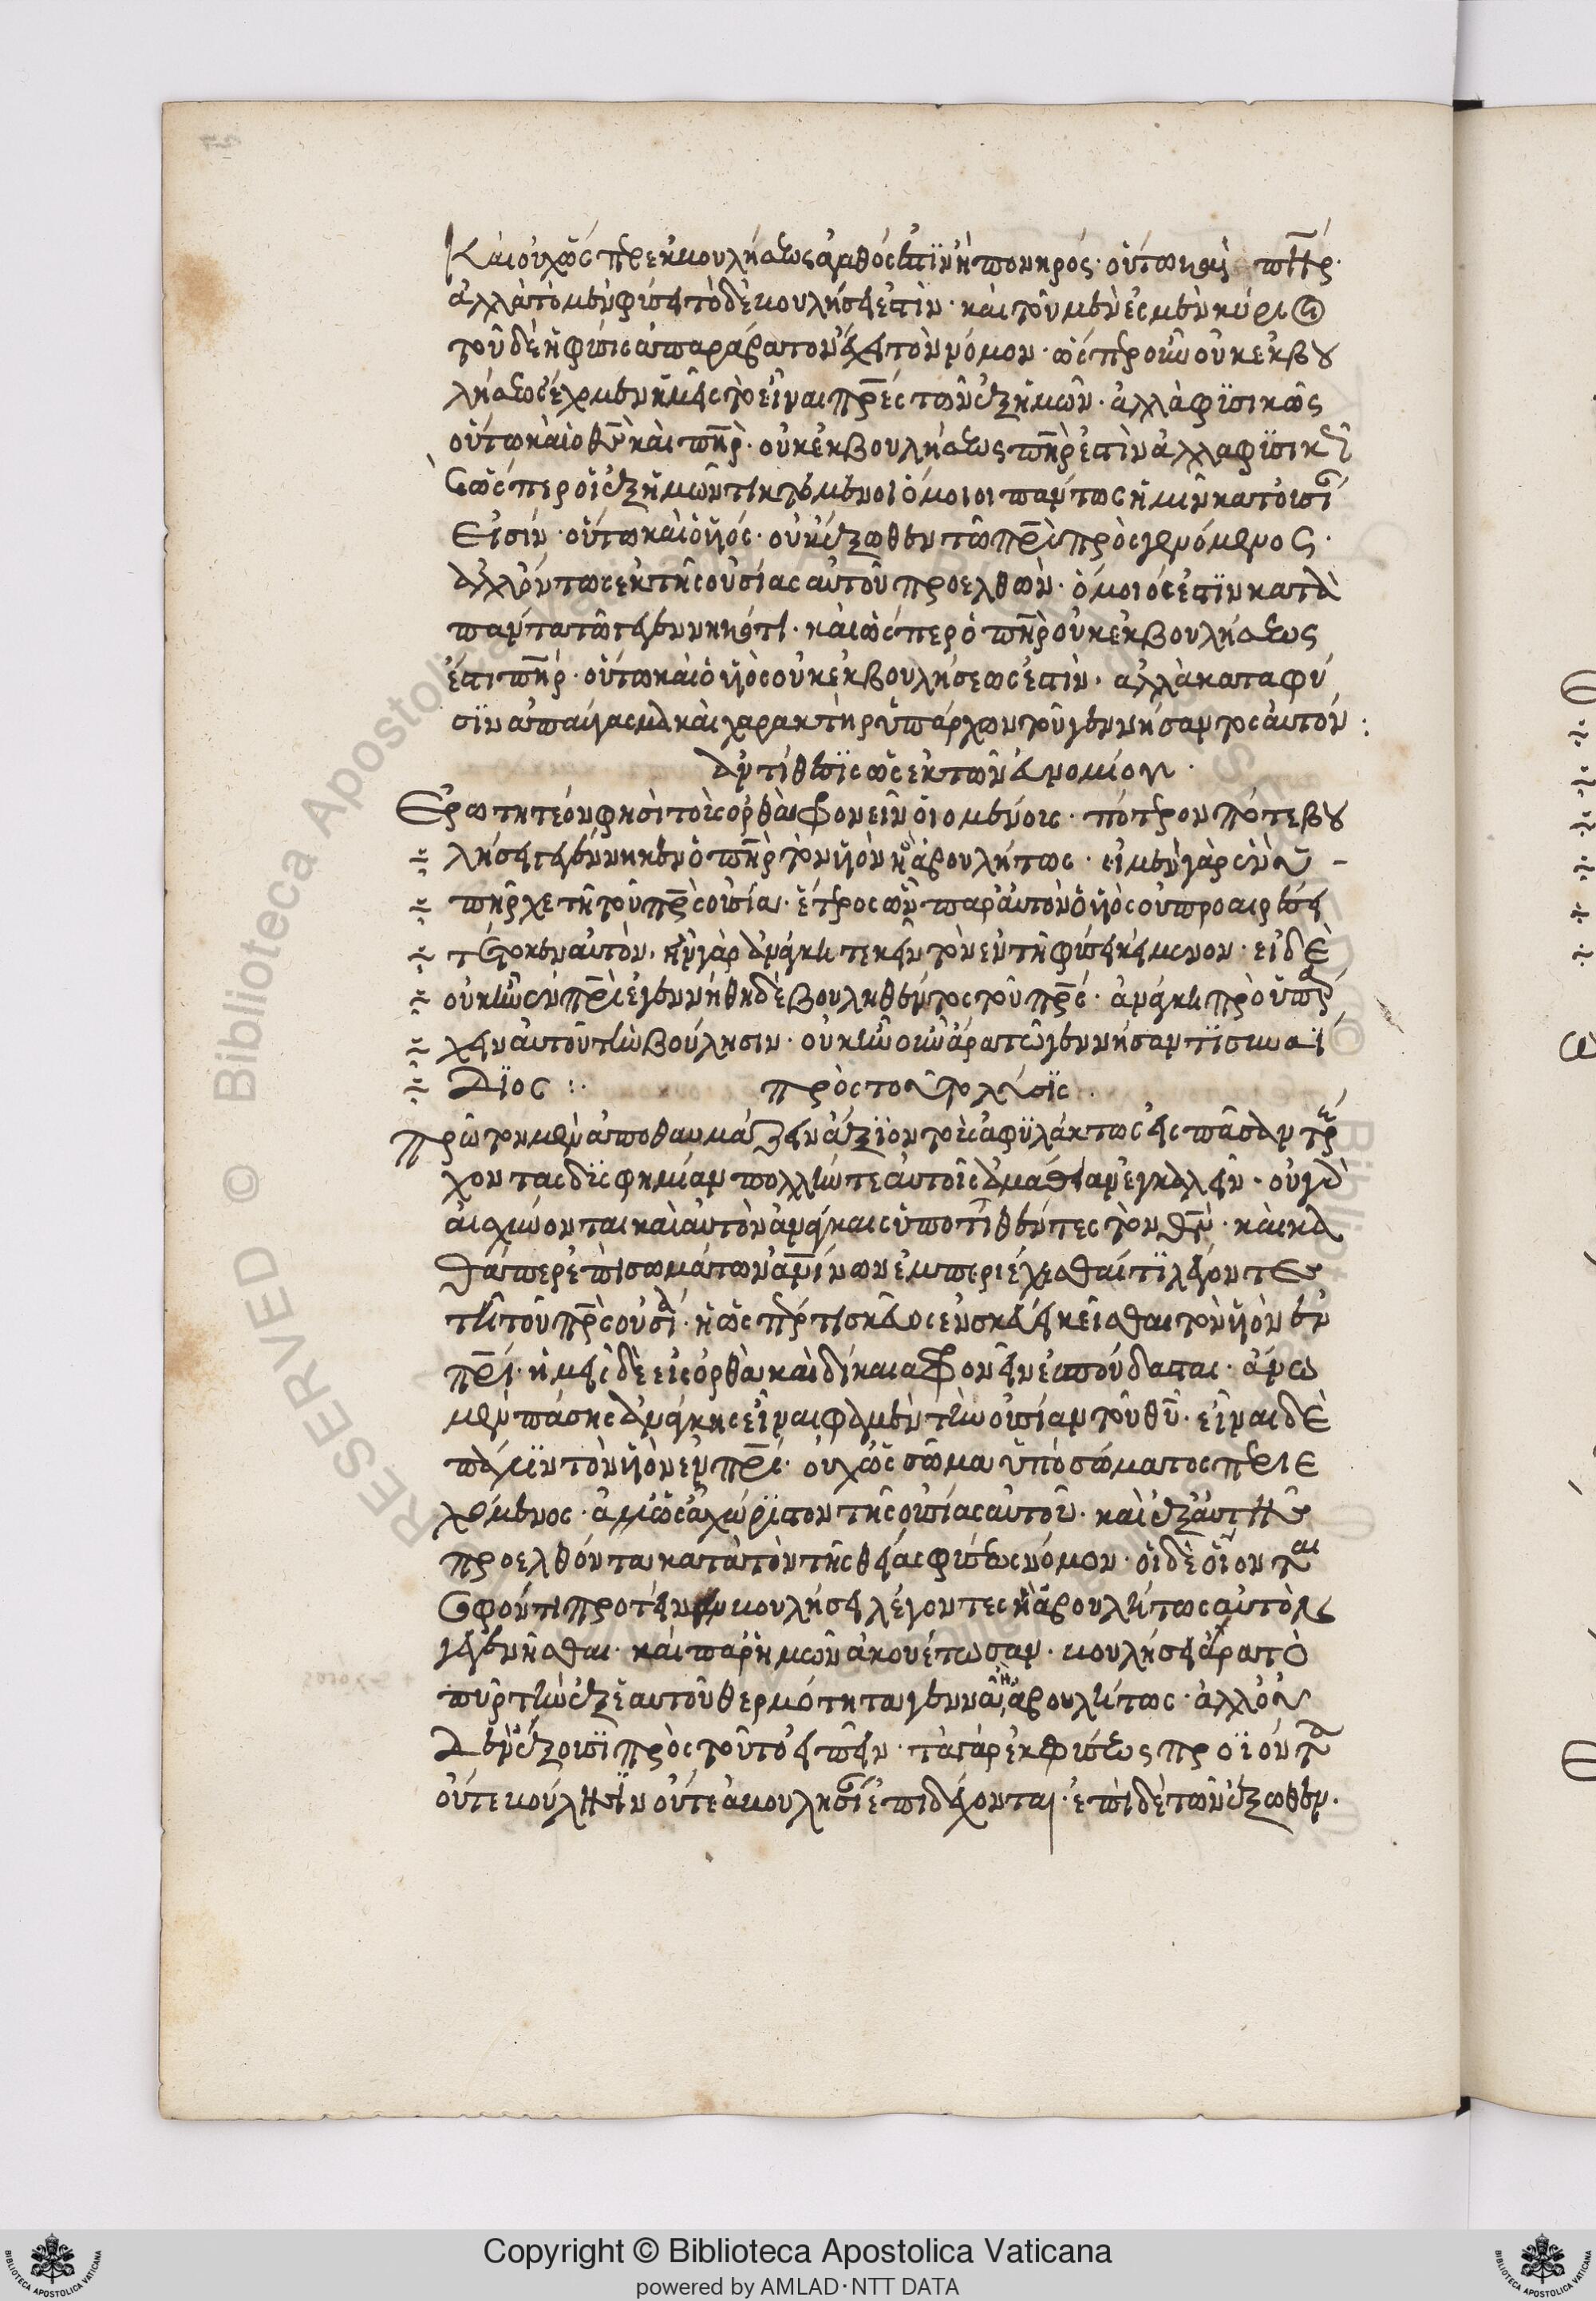 Καὶ οὐχ ὥσπερ ἐκ βουλήσεως ἀγαθός ἐστιν ἢ πονηρός· οὕτω καὶ πηρ·
ἀλλὰ τὸ μὲν φύσει τὸ δὲ βουλήσει ἐστίν· καὶ τοῦ μέν ἐσμεν κύριοι
τοῦ δὲ ἡ φύσις ἀπαράβατον ἔχει τὸν νόμον· ὥσπερ οὖν οὐκ ἐκ βου
λήσεως ἔχομεν ἡμεῖς τὸ εἶναι πρες τῶν ἐξ ἡμῶν· ἀλλὰ φυσικῶς
οὕτω καὶ ὁ θς καὶ πηρ· οὐκ ἐκ βουλήσεως πηρ ἐστὶν ἀλλὰ φυσικῶς
ὥσπερ οἱ ἐξ ἡμῶν τικτόμενοι ὅμοιοι πάντως ἡμῖν κατ' οὐσίαν
εἰσίν· οὕτω καὶ ὁ υἱός· οὐκ ἔξωθεν τῶ πρι προσγενόμενος·
ἀλλ' ὄντως ἐκ τῆς οὐσίας αὐτοῦ προελθών· ὅμοιός ἐστιν κατὰ
πάντα τῶ γεγεννηκότι· καὶ ὥσπερ ὁ πηρ οὐκ ἐκ βουλήσεως
ἐστι πηρ· οὕτω καὶ ὁ υἱὸς οὐκ ἐκ βουλήσεως ἐστὶν· ἀλλὰ κατὰ φύ
σιν ἀπαύγασμα καὶ χαρακτὴρ ὑπάρχων τοῦ γεννήσαντος αὐτόν:
Ἀντίθεσις ὡς ἐκ τῶν Εὐνομίου·
Ἐρωτητέον φησὶ τοῖς ὀρθὰ φρονεῖν οἰομένοις· πότερον ποτε βου
λήσει γεγέννηκεν ὁ πηρ τὸν υἱὸν ἢ ἀβουλήτως· εἰ μὲν γὰρ ἐνυ-
πῆρχε τῆ τοῦ πρς οὐσία· ἕτερος ὢν παρ' αὐτὸν ὁ υἱὸς οὐ προαιρέσει
τέτοκεν αὐτὸν· ἦν γὰρ ἀνάγκη τεκεῖν τὸν ἐν τῆ φύσει κείμενον· εἰ δὲ
οὐκ ὢν ἐν πρι ἐγεννήθη δὲ βουληθέντος τοῦ πρς· ἀνάγκη προϋπάρ
χειν αὐτοῦ τὴν βούλησιν· οὐκ ἦν οὖν ἄρα τῶ γεννήσαντι συναΐ
διος :· πρὸς τοῦτο λύσις·
Πρῶτον μὲν ἀποθαυμάζειν ἄξιον τοὺς ἀφυλάκτως εἰς πᾶσαν τρέ
χοντας δυσφημίαν πολλήν τε αὐτοῖς ἀμαθίαν ἐγκαλεῖν· οὐ γὰρ
αἰσχύνονται καὶ αὐτὸν ἀνάγκαις ὑποτιθέντες τὸν θν· καὶ κα
θάπερ ἐπὶ σωμάτων ἀμείνων ἐμπεριέχεσθαί τι λέγοντες
τῆ τοῦ πρς οὐσία· ἢ ὥσπερ τι σκεῦος ἐν σκεύει κεῖσθαι τὸν υἱὸν ἐν
πρι· ἡμεῖς δὲ εἰς ὀρθὰ καὶ δίκαια φρονεῖν ἐσπούδασται· ἄνω
μὲν πάσης ἀνάγκης εἶναι φαμὲν τὴν οὐσίαν τοῦ θυ· εἶναι δὲ
πάλιν τὸν υἱὸν ἐν πρι· οὐχ ὡς σῶμα ὑπὸ σώματος περιε
χόμενος· ἀλλ' ὡς ἀχώριστον τῆς οὐσίας αὐτοῦ· καὶ ἐξ αὐτῆς
προελθόντα κατὰ τὸν τῆς θείας φύσεως νόμον· οἱ δὲ οἴονται
σοφόν τι προτείνειν βουλήσει λέγοντες ἢ ἀβουλήτως αὐτὸν
γεγενῆσθαι· καὶ παρ' ἡμῶν ἀκουέτωσαν· βουλήσει ἄρα τὸ
πῦρ τὴν ἐξ ἑαυτοῦ θερμότητα γεννᾶ, ἢ ἀβουλήτως· ἀλλ' οὐ
δὲν ἕξουσι πρὸς τοῦτο εἰπεῖν· τὰ γὰρ ἐκ φύσεως προϊόντα
οὔτε βούλησιν οὔτε ἀβουλησίαν ἐπιδέχονται· ἐπὶ δὲ τῶν ἔξωθεν·
Copyright © Biblioteca Apostolica Vaticana
powered by AMLAD·NTT DATA